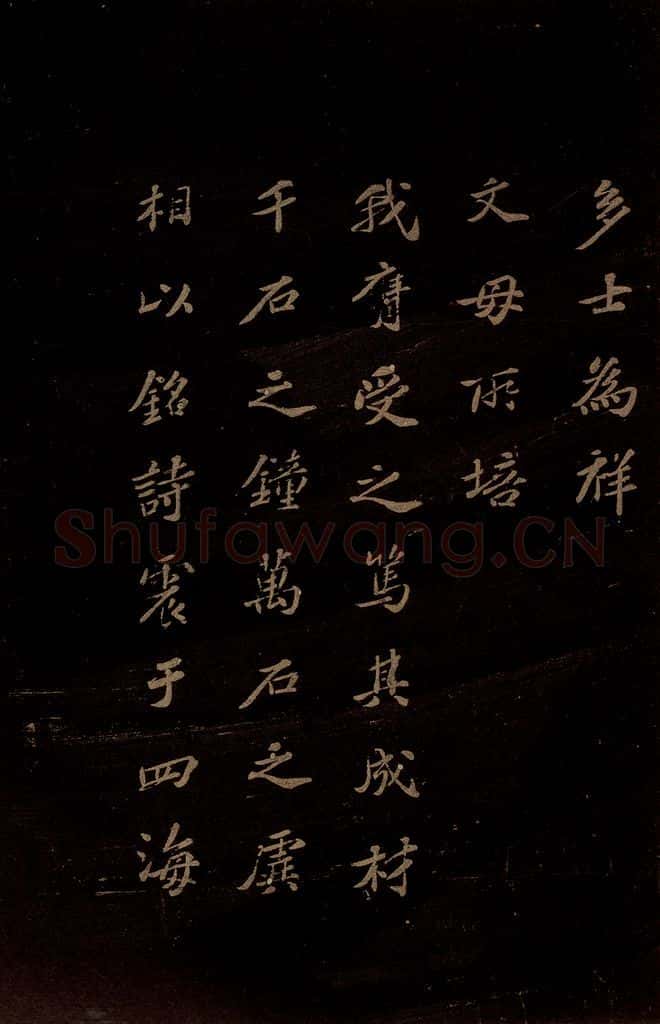 多士為祥
文母所培
我膺受之篤其成材
千石之鐘萬石之虡
相以銘詩震于四海
Shufawang.CN